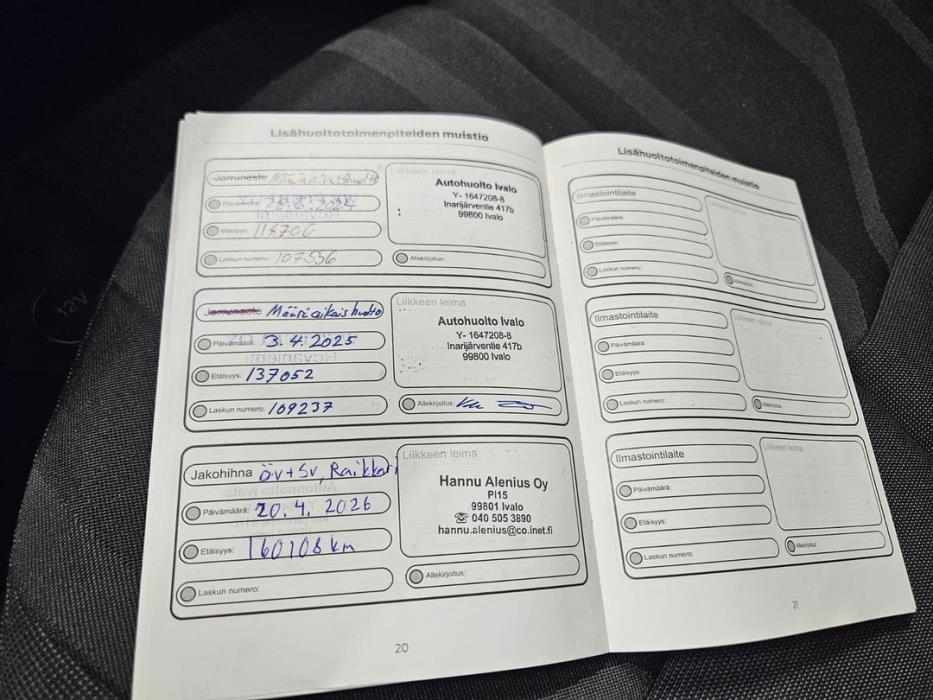 Lisähuoltotoimenpiteiden muistio
Jarruneste Määräaikaishuolto
Liikkeen leima
Autohuolto Ivalo
Y- 1647208-8
Inarijärventie 417b
99800 Ivalo
Päivämäärä:
Etäisyys: 114706
Laskun numero: 107556
Allekirjoitus:
Jarruneste Määräaikaishuolto
Liikkeen leima
Autohuolto Ivalo
Y- 1647208-8
Inarijärventie 417b
99800 Ivalo
Päivämäärä: 3.4.2025
Etäisyys: 137052
Laskun numero: 109237
Allekirjoitus:
Jakohihna öv+sv, Raikkari
Liikkeen leima
Hannu Alenius Oy
Pl15
99801 Ivalo
☎ 040 505 3890
hannu.alenius@co.inet.fi
Päivämäärä: 20.4.2026
Etäisyys: 160108 km
Laskun numero:
Allekirjoitus:
20
Lisähuoltotoimenpiteiden muistio
Ilmastointilaite
Liikkeen leima
Päivämäärä:
Etäisyys:
Laskun numero:
Allekirjoitus:
Ilmastointilaite
Liikkeen leima
Päivämäärä:
Etäisyys:
Laskun numero:
Allekirjoitus:
Ilmastointilaite
Liikkeen leima
Päivämäärä:
Etäisyys:
Laskun numero:
Allekirjoitus:
21
12V